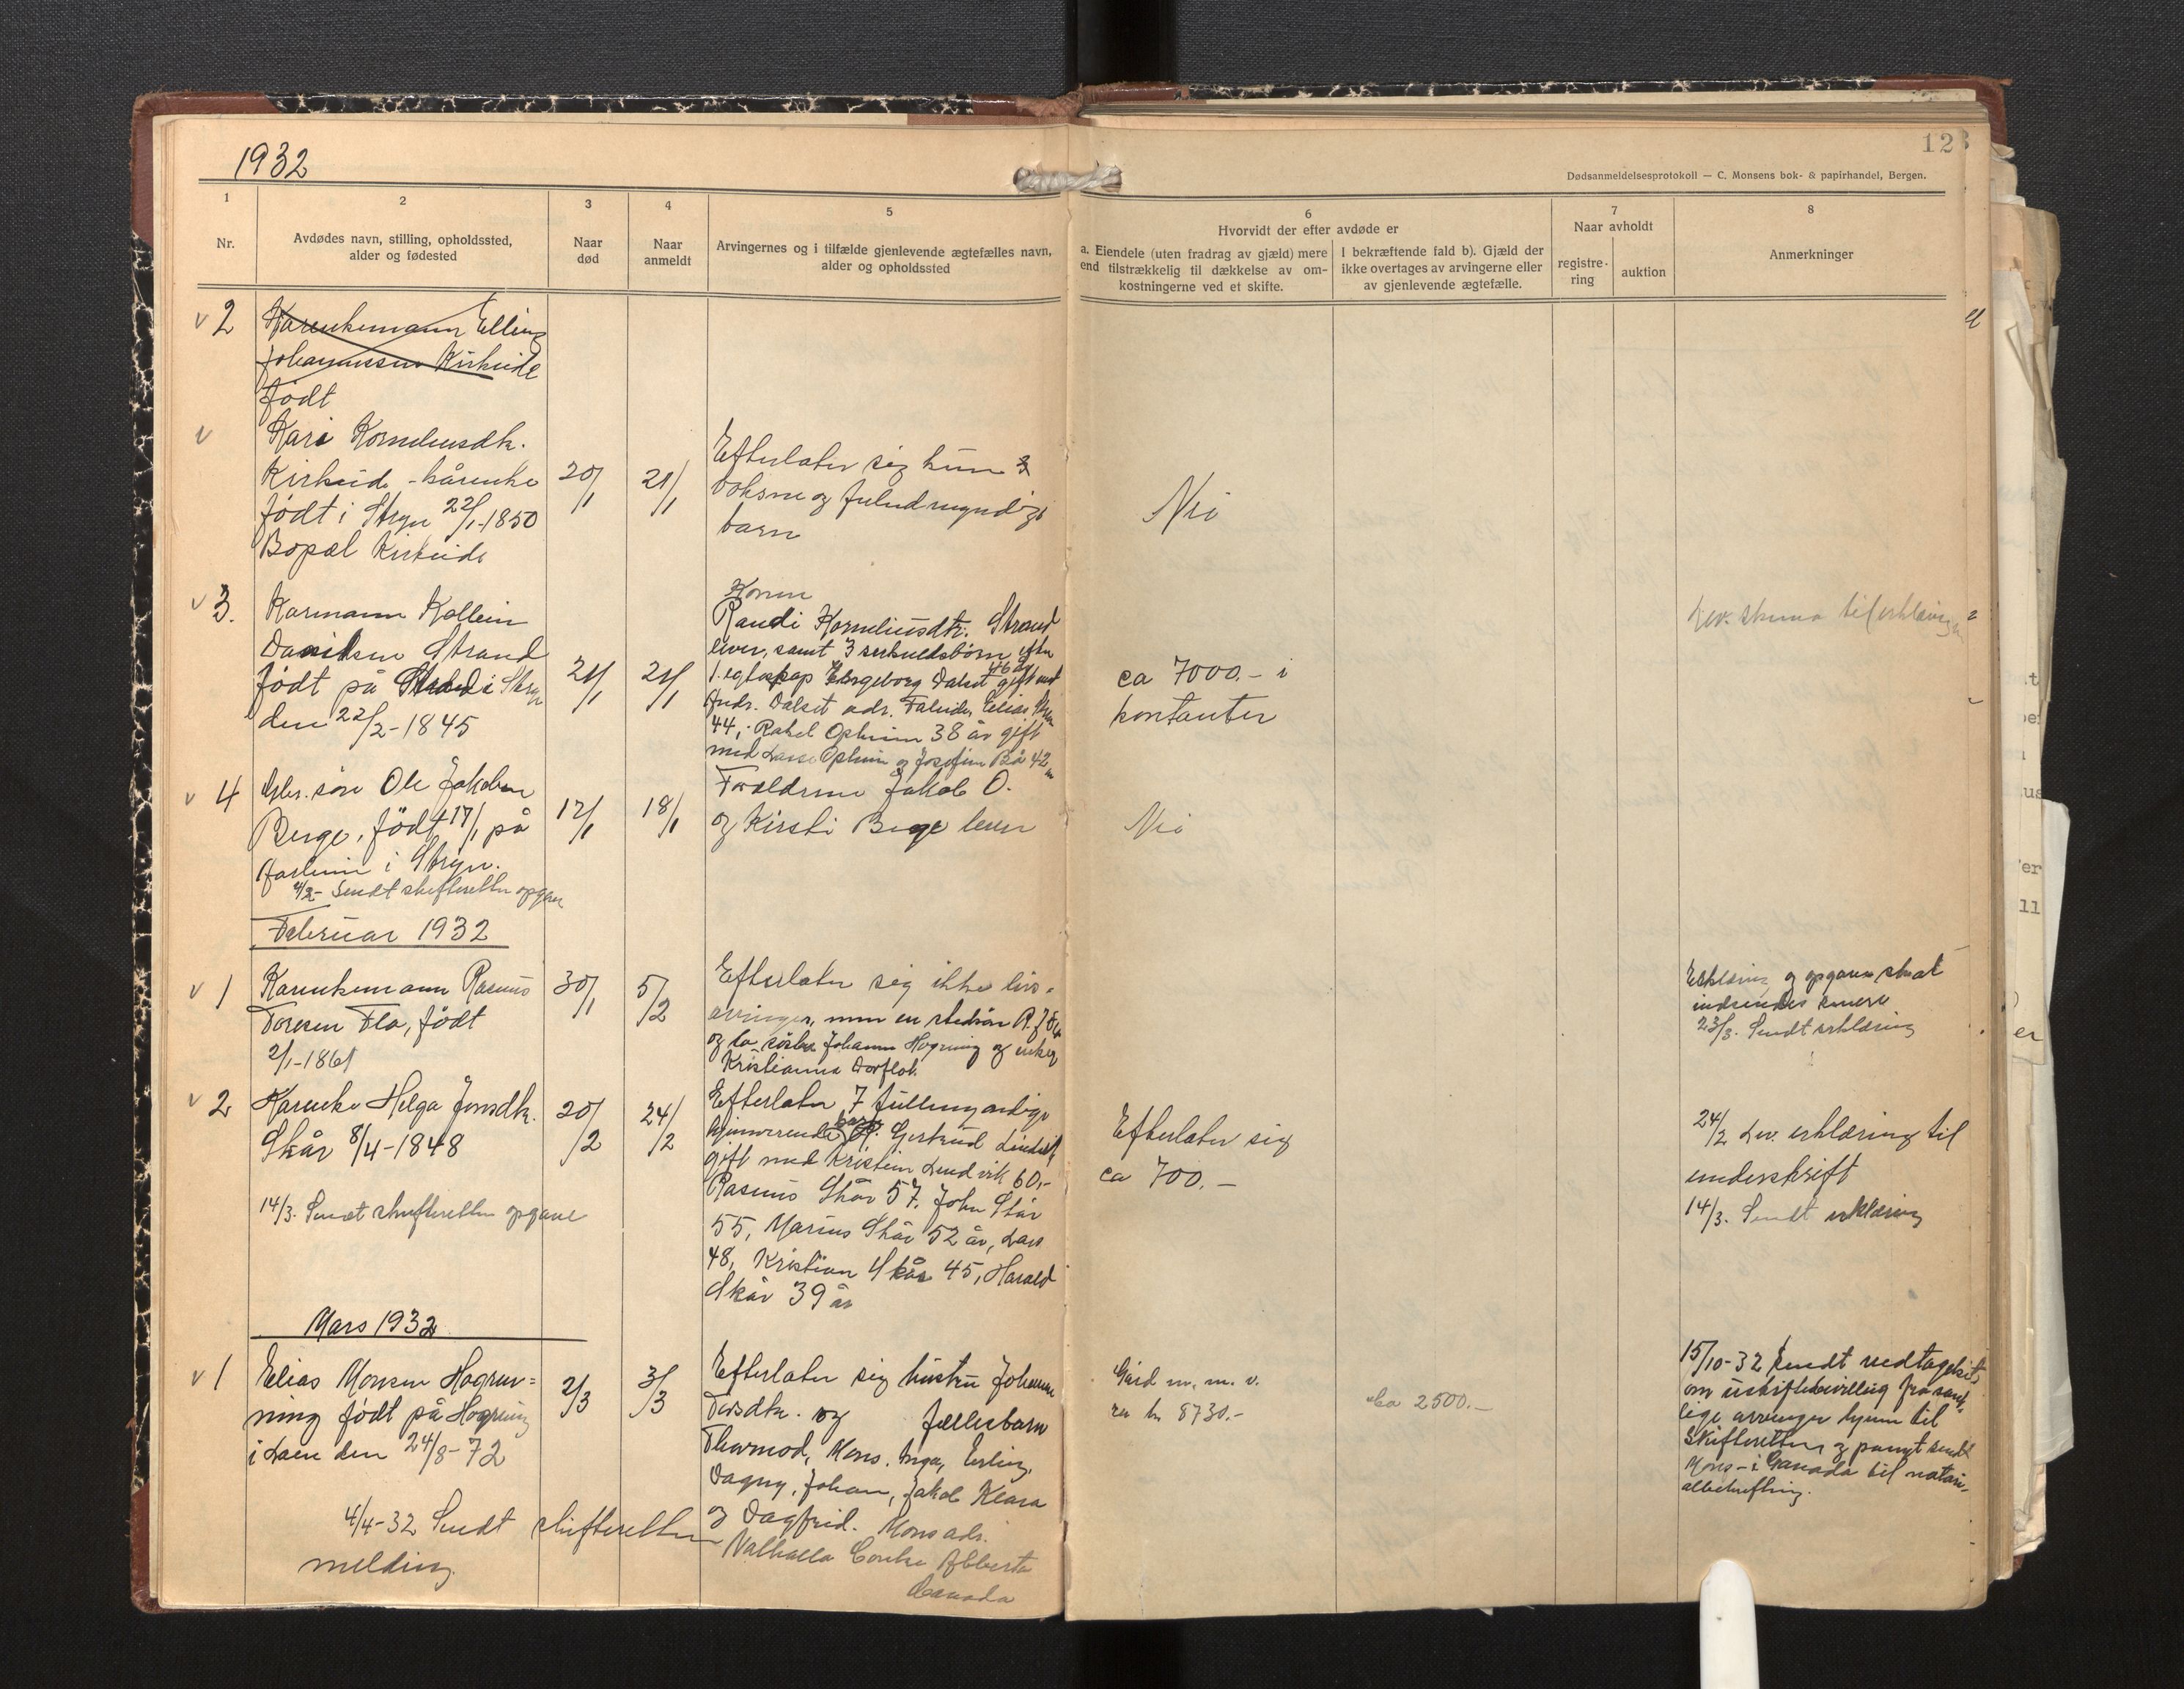 1932
12
Dødsanmeldelsesprotokoll — C. Monsens bok- & papirhandel, Bergen.
1
Nr.
2
Avdødes navn, stilling, opholdssted,
alder og fødested
3
Naar
død
4
Naar
anmeldt
5
Arvingernes og i tilfælde gjenlevende ægtefælles navn,
alder og opholdssted
6
Hvorvidt der efter avdøde er
a. Eiendele (uten fradrag av gjæld) mere
end tilstrækkelig til dækkelse av om-
kostningerne ved et skifte.
I bekræftende fald b). Gjæld der
ikke overtages av arvingerne eller
av gjenlevende ægtefælle.
7
Naar avholdt
registre-
ring
auktion
8
Anmerkninger
v 2
Kårenkemann Elling
Johannessen Kirkeide
født
v
Kari Korneliusdtr.
Kirkeide - kårenke
født i Stryn 22/1-1850
Bopæl Kirkeide
20/1
21/1
Efterlater sig kun 3
voksne og fuldmyndige
barn
Nei
v 3.
Kårmann Kollein
Davidsen Strand
født på Strand i Stryn
den 22/2-1845
21/1
21/1
Konen
Randi Korneliusdtr. Strand
lever, samt 3 særkuldsbörn efter
1. egteskap Ingeborg Dalset 46 år gift med
Andr. Dalset adr. Faleide, Elias
44, Rakel Opheim 38 år gift
med Lasse Opheim og Josefine Bö 42
ca 7000.- i
kontanter
Lev. skema til erklæring
v 4
Arb. søn Ole Jakobsen
Berge, født 17/1 på
i Stryn.
4/2- Sendt skifteretten opgave
17/1
18/1
Foreldrene Jakob O.
og Kirsti Berge lever
Nei
Februar 1932
v 1
Kårenkemann Rasmus
Toresen Flo, født
2/1-1861
30/1
5/2
Efterlater sig ikke livs-
arvinger, men en stedsön R. J.
og to søstre Johanne Hogrening og enken
Kristianna
Erklæring og opgave skal
indsendes senere
23/3. Sendt erklæring
v 2
Kårenke Helga Jonsdtr.
Skår 8/4-1848
14/3. Sendt skifteretten opgave
20/2
24/2
Efterlater 7 fullmyndige
hjemværende barn. Gjertrud Lindvik
gift med Kristen Lindvik 60,-
Rasmus Skår 57, John Skår
55, Marius Skår 52 år, Lars
48, Kristian Skår 45, Harald
Skår 39 år
Efterlater sig
ca 700.-
24/2 Lev. erklæring til
underskrift
14/3. Sendt erklæring
Mars 1932
v 1
Elias Monsen Hogren=
ning født på Hogrening
i Loen den 24/8-72
4/4-32 Sendt skifteretten
melding.
2/3
3/3
Efterlater sig hustru Johanne
og fællesbarn
Thormod, Mons, Inga, Erling,
Dagny, Johan, Jakob Klara
og Dagfrid. Mons adr.
Valhalla Centre Alberta
Canada
Gård m. m. v.
ca kr 8730.-
Ca 2500.-
15/10-32 Sendt vedtagelse
om uskiftebevilling fra samt-
lige arvinger hjem til
Skifteretten og pånyt sendt
Mons - i Canada til notari-
albekrefting.